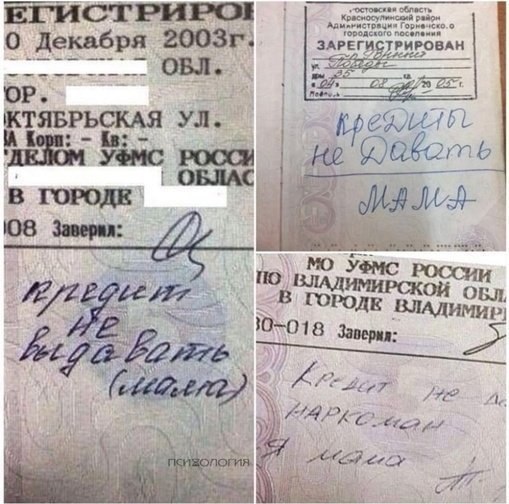 ЕГИСТРИРОВ
0 Декабря 2003г.
ОБЛ.
ОР.
КТЯБРЬСКАЯ УЛ.
Корп: - Кв: -
ДЕЛОМ УФМС РОССИ
ОБЛАС
В ГОРОДЕ
08 Заверил:
кредит
не
выдавать
(мама)
психология
остовская область
Красносулинский район
Администрация Горненско.о
городского поселения
ЗАРЕГИСТРИРОВАН
ул. Победы
дом 25 кв.
04 08 2005 г.
кредиты
не давать
МАМА
МО УФМС РОССИИ
ПО ВЛАДИМИРСКОЙ ОБЛ
В ГОРОДЕ ВЛАДИМИР
30-018 Заверил:
Кредит не
НАРКОМАН
Я мама